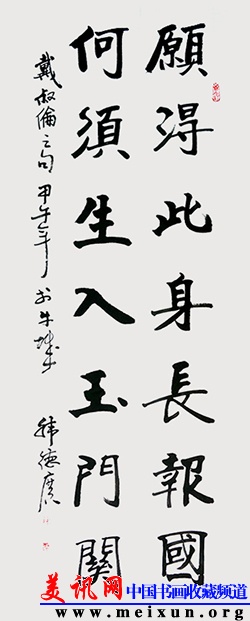 願得此身長報國
何須生入玉門關
戴叔倫之句 甲午年 於牛城 韩德广
美讯网 中国书画收藏频道
www.meixun.org